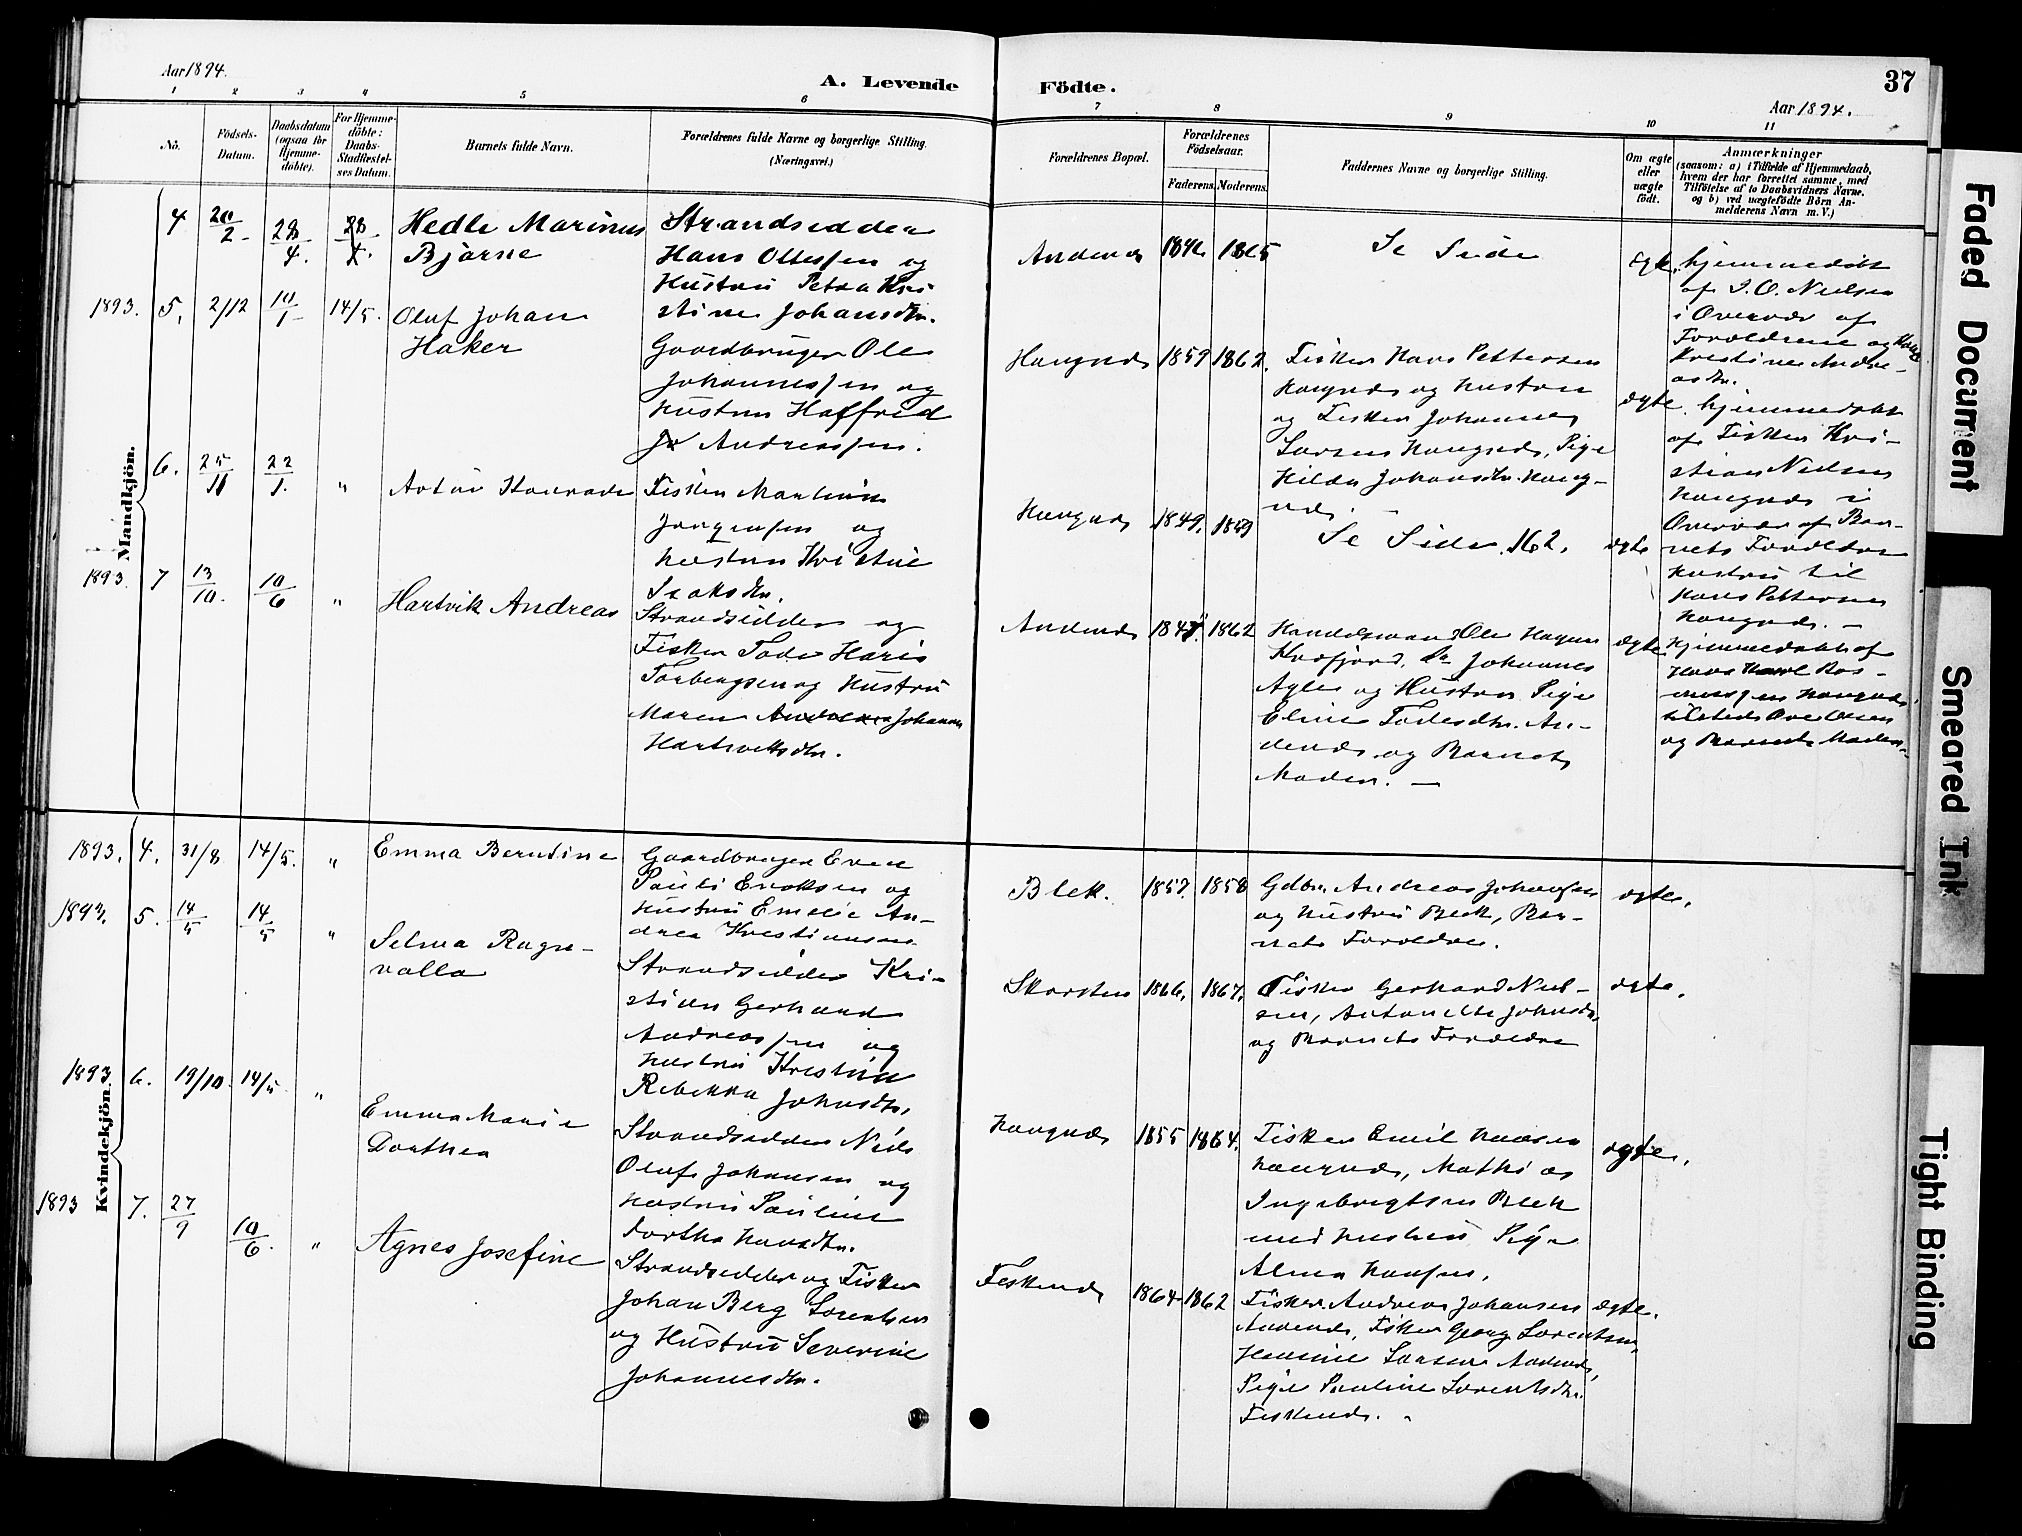 Aar 1894.
A. Levende
Födte.
37
Aar 1894.
1
2
3
4
5
6
7
8
9
10
11
No.
Födsels-
Datum.
Daabsdatum
(ogsaa for
Hjemme-
döbte).
For Hjemme-
döbte:
Daabs-
Stadfæstel-
ses Datum.
Barnets fulde Navn.
Forældrenes fulde Navne og borgerlige Stilling.
(Næringsvei.)
Forældrenes Bopæl.
Forældrenes
Födselsaar.
Faderens.
Moderens.
Faddernes Navne og borgerlige Stilling.
Om ægte
eller
uægte
födt.
Anmærkninger
(saasom: a) i Tilfælde af Hjemmedaab,
hvem der har forrettet samme, med
Tilföielse af to Daabsvidners Navne,
og b) ved uægtefödte Börn An-
melderens Navn m. V.)
Mandkjön.
4
20/2
28/4.
Hedle Marinus
Bjarne
Strandsidder
Hans Ottessen og
Hustru Petra Kri
stine Johansdtr.
Andenæs
1865
Se Side
ægte.
hjemmedöbt
af I. O. Nielsen
i Overvær af
Forældrene og
Kristine Andre-
asdtr.
1893.
5.
2/12
14/5.
Oluf Johan
Haker
Gaardbruger Ole
Johannessen og
Hustru Haffred
Andreassen.
Haugnæs
1859
1862.
Fisker Hans Pettersen
Haugnæs og Hustru
og Fisker Johannes
Larsen Haugnæs, Pige
Hilda Johansdtr. Haug-
næs. -
ægte.
hjemmedöbt
af Fisker Kri-
stian Nielsen
Haugnæs i
Overvær af Bar-
nets Forældre
Hustru til
Hans Pettersen
Haugnæs. -
6.
25/11
22/1.
"
Artur Konrade
Fisker Martin
Jörgensen og
Hustru Kristine
Isaksdtr.
Haugnæs
1849.
1859
Se Side 162.
ægte
1893.
7
13/10.
10/6
"
Hartvik Andreas
Strandsidder og
Fisker Tode Haris
Torbergsen og Hustru
Maren Andrea Johanna
Hartviksdtr.
Andenæs
1862
Handelsmand Ole Hagen
Kvæfjord, Johannes
og Hustru Pige
Eline Todesdtr. An-
denæs og Barnets
Moder. -
ægte
Hjemmedöbt af
Hans Karl Ras-
mussen Haugnæs
tilstede Ove Olsen
og Barnets Moder.
Kvindekjön.
1893.
4.
31/8
14/5.
"
Emma Berntine
Gaardbruger Even
Pauli Eriksen og
Hustru Emelie An-
drea Kristiansen
Blek.
1857.
1858
Gdbr. Andreas Johansen
og Hustru Blek, Bar-
nets Forældre.
ægte.
1893.
5.
14/5
14/5
"
Selma Ragn-
valla
Strandsidder Kri-
stian Gerhard
Andreassen og
Hustru Kristine
Rebekka Johnsdtr.
Skarsten
1866.
1867.
Fisker Gerhard Niel-
sen, Antonette Johnsdtr.
og Barnets Forældre
ægte.
1893
6.
19/10
14/5
"
Emma Marie
Dorthea
Strandsidder Nils
Oluf Johansen og
Hustru Pauline
Dorthe Hansdtr.
Haugnæs
1855
1864.
Fisker Emil Hansen
Haugnæs, Mathias
Ingebrigtsen Blek
med Hustru Pige
Alma Hansen.
ægte.
1893
7.
27/9
10/6.
"
Agnes Josefine
Strandsidder og Fisker
Johan Berg Lorentsen
og Hustru Severine
Johannesdtr.
Fiskenæs
1864
1862
Fisker Andreas Johansen
Andenæs, Fisker Georg Lorentsen,
Larsen Andenæs,
Pige Pauline Lorentsdtr.
Fiskenæs.
ægte.
Faded Document
Smeared Ink
Tight Binding